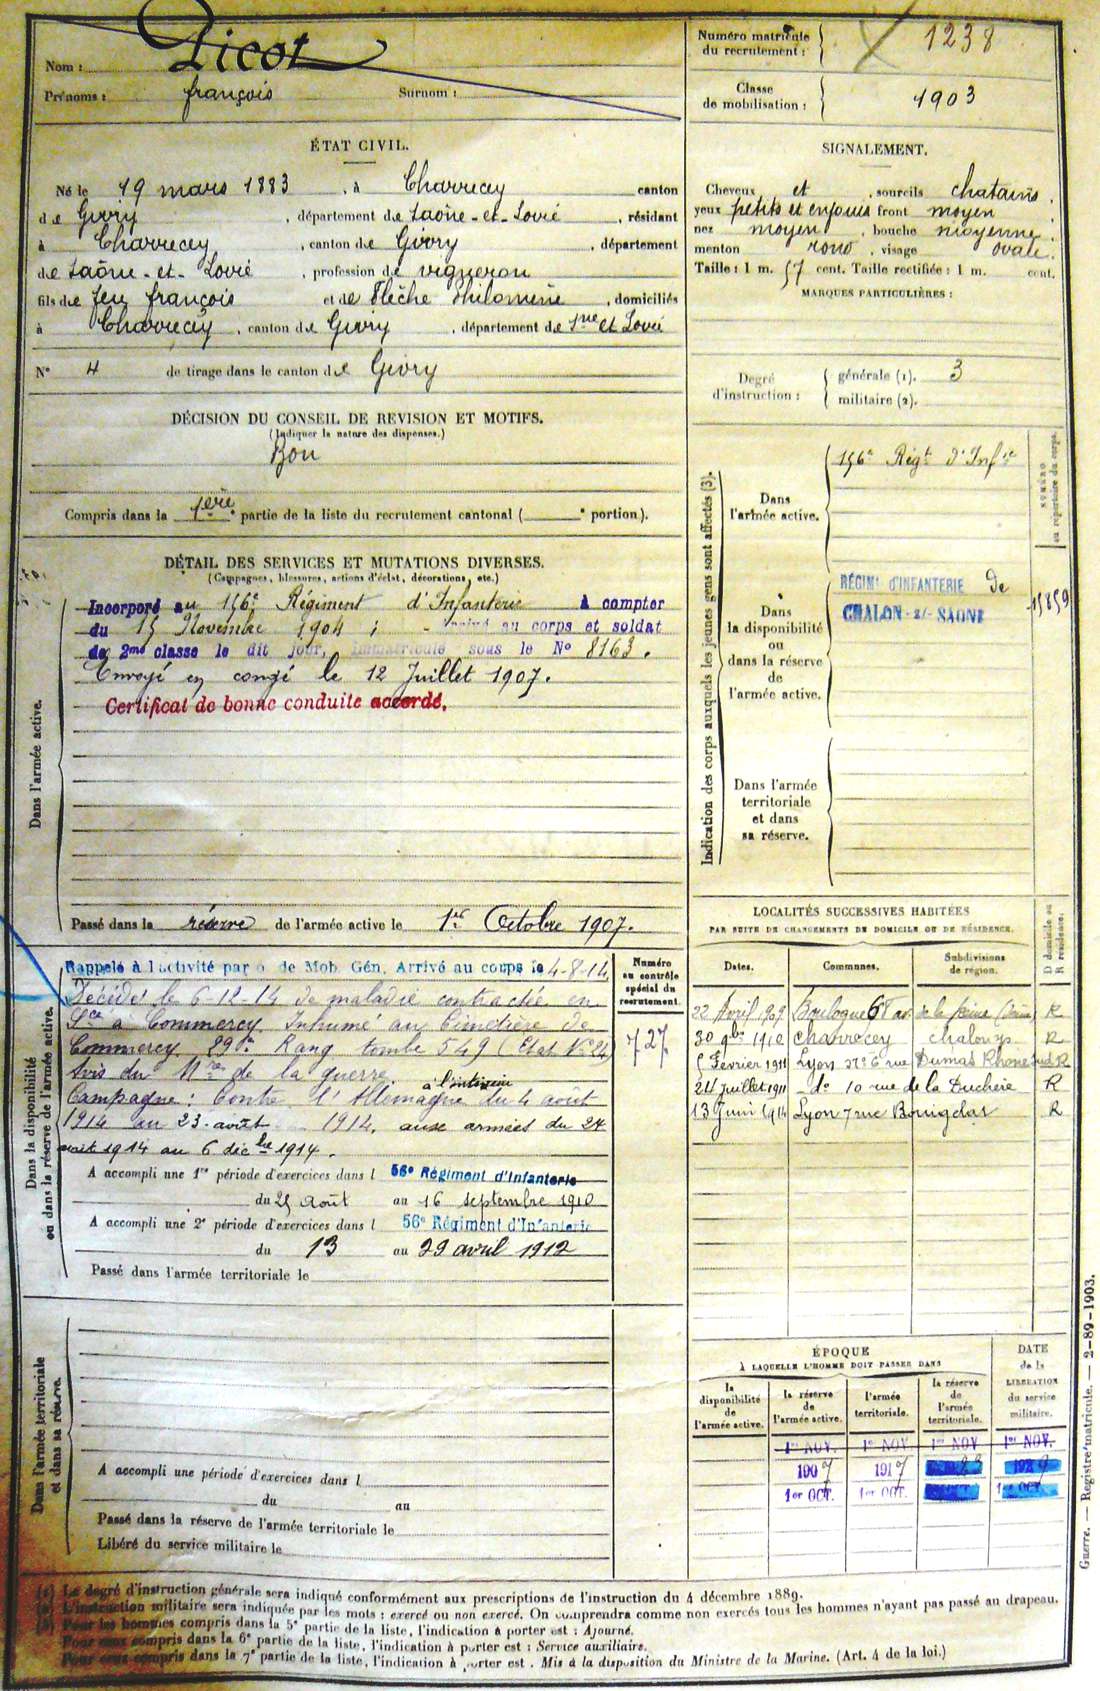 Nom : Picot
Prénoms : françois Surnom :
Numéro matricule du recrutement : 1238
Classe de mobilisation : 1903
ÉTAT CIVIL.
Né le 19 mars 1883, à Charrecey canton
de Givry, département de Saône-et-Loire, résidant
à Charrecey, canton de Givry, département
de Saône-et-Loire, profession de vigneron
fils de feu françois et de Flèche Philomène, domiciliés
à Charrecey, canton de Givry, département de Sne et Loire
N° 4 de tirage dans le canton de Givry
SIGNALEMENT.
Cheveux et, sourcils chatains,
yeux petits et enfouis front moyen
nez moyen, bouche moyenne,
menton rond, visage ovale.
Taille : 1 m. 57 cent. Taille rectifiée : 1 m. cent.
MARQUES PARTICULIÈRES :
Degré d'instruction :
générale (1). 3
militaire (2).
DÉCISION DU CONSEIL DE REVISION ET MOTIFS.
(Indiquer la nature des dispenses.)
Bon
Compris dans la 1ère partie de la liste du recrutement cantonal ( e portion).
DÉTAIL DES SERVICES ET MUTATIONS DIVERSES.
(Campagnes, blessures, actions d'éclat, décorations, etc.)
Dans l'armée active.
Incorporé au 156e Régiment d'Infanterie à compter
du 15 Novembre 1904 ; arrivé au corps et soldat
de 2me classe le dit jour, immatriculé sous le No 8163.
Envoyé en congé le 12 Juillet 1907.
Certificat de bonne conduite accordé.
Passé dans la réserve de l'armée active le 1er Octobre 1907.
Indication des corps auxquels les jeunes gens sont affectés (3).
NUMÉRO au répertoire du corps.
Dans l'armée active.
156e Régt d'Infie
Dans la disponibilité ou dans la réserve de l'armée active.
RÉGIMt D'INFANTERIE de
CHALON-s/-SAONE
15859
Dans l'armée territoriale et dans sa réserve.
Dans la disponibilité ou dans la réserve de l'armée active.
Rappelé à l'activité par o. de Mob. Gén. Arrivé au corps le 4-8-14
Décédé le 6-12-14 de maladie contractée en
Sce à Commercy. Inhumé au Cimetière de
Commercy 29e Rang tombe 549 (Etat No 24
Avis du Mre de la guerre.
à l'intérieur
Campagne : Contre l'Allemagne du 4 août
1914 au 23 août 1914. aux armées du 24
août 1914 au 6 décbre 1914.
A accompli une 1re période d'exercices dans l 56e Régiment d'Infanterie
du 25 août au 16 septembre 1910
A accompli une 2e période d'exercices dans l 56e Régiment d'Infanterie
du 13 au 29 avril 1912
Passé dans l'armée territoriale le
Numéro au contrôle spécial du recrutement.
727
LOCALITÉS SUCCESSIVES HABITÉES
PAR SUITE DE CHANGEMENTS DE DOMICILE OU DE RÉSIDENCE.
Dates. Communes. Subdivisions de région. D domicile ou R résidence.
22 Avril 1909 Boulogne de la Reine (Seine) R
30 9bre 1910 Charrecey chalon s/s R
Février 1911 Lyon 6 rue Dumas Rhône Sud R
24 Juillet 1911 do 10 rue de la Duchère R
13 Juin 1914 Lyon 7 rue R
Dans l'armée territoriale et dans sa réserve.
A accompli une période d'exercices dans l
du au
Passé dans la réserve de l'armée territoriale le
Libéré du service militaire le
ÉPOQUE
À LAQUELLE L'HOMME DOIT PASSER DANS
la disponibilité de l'armée active. la réserve de l'armée active. l'armée territoriale. la réserve de l'armée territoriale. DATE de la LIBÉRATION du service militaire.
1er NOV. 1er NOV. 1er NOV. 1er NOV.
1907 1917 1923 1929
1er OCT. 1er OCT. 1er OCT.
Guerre. — Registre matricule. — 2-89-1903.
(1) Le degré d'instruction générale sera indiqué conformément aux prescriptions de l'instruction du 4 décembre 1889.
(2) L'instruction militaire sera indiquée par les mots : exercé ou non exercé. On comprendra comme non exercés tous les hommes n'ayant pas passé au drapeau.
(3) Pour les hommes compris dans la 5e partie de la liste, l'indication à porter est : Ajourné.
Pour ceux compris dans la 6e partie de la liste, l'indication à porter est : Service auxiliaire.
Pour ceux compris dans la 7e partie de la liste, l'indication à porter est : Mis à la disposition du Ministre de la Marine. (Art. 4 de la loi.)